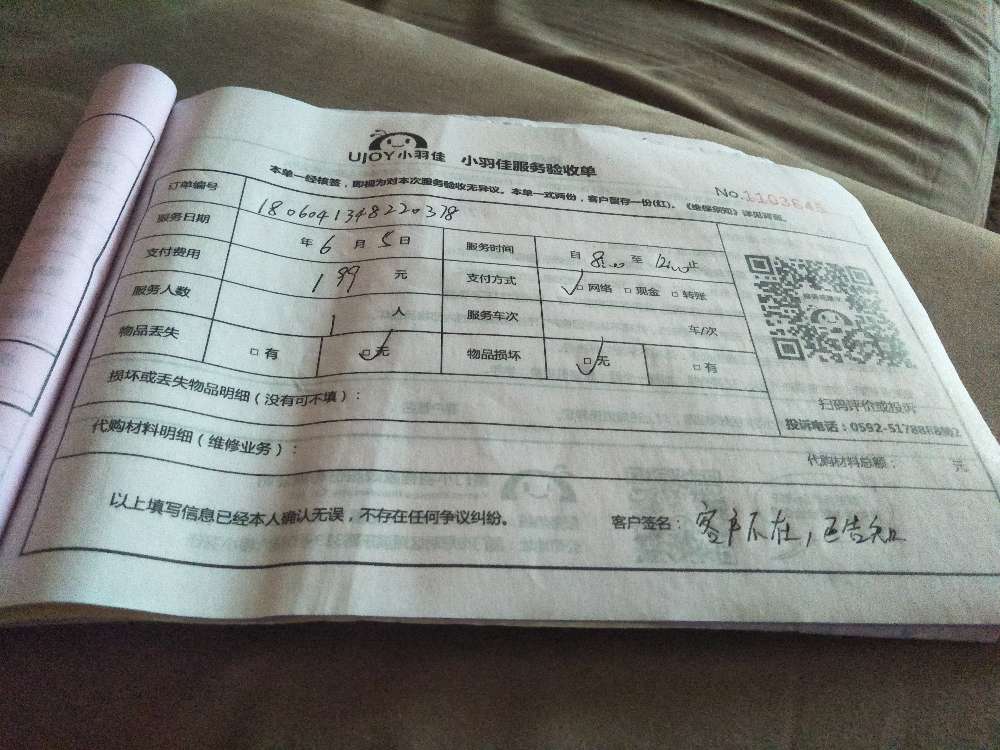 UJOY小羽佳 小羽佳服务验收单
No.1103645
本单一经核签，即视为对本次服务验收无异议。本单一式两份，客户留存一份(红)。《维修须知》详见背面。
订单编号 1806041348220378
服务日期 年 6 月 5 日 服务时间 自 8:00 至 12:00 止
支付费用 199 元 支付方式 ✓□ 网络 □ 现金 □ 转账
服务人数 1 人 服务车次 车/次
物品丢失 □ 有 ☑ 无 物品损坏 ☑ 无 □ 有
损坏或丢失物品明细（没有可不填）：
扫码评价或投诉
投诉电话：0592-5178888转2
代购材料明细（维修业务）：
代购材料总额： 元
以上填写信息已经本人确认无误，不存在任何争议纠纷。 客户签名：客户不在，已告知